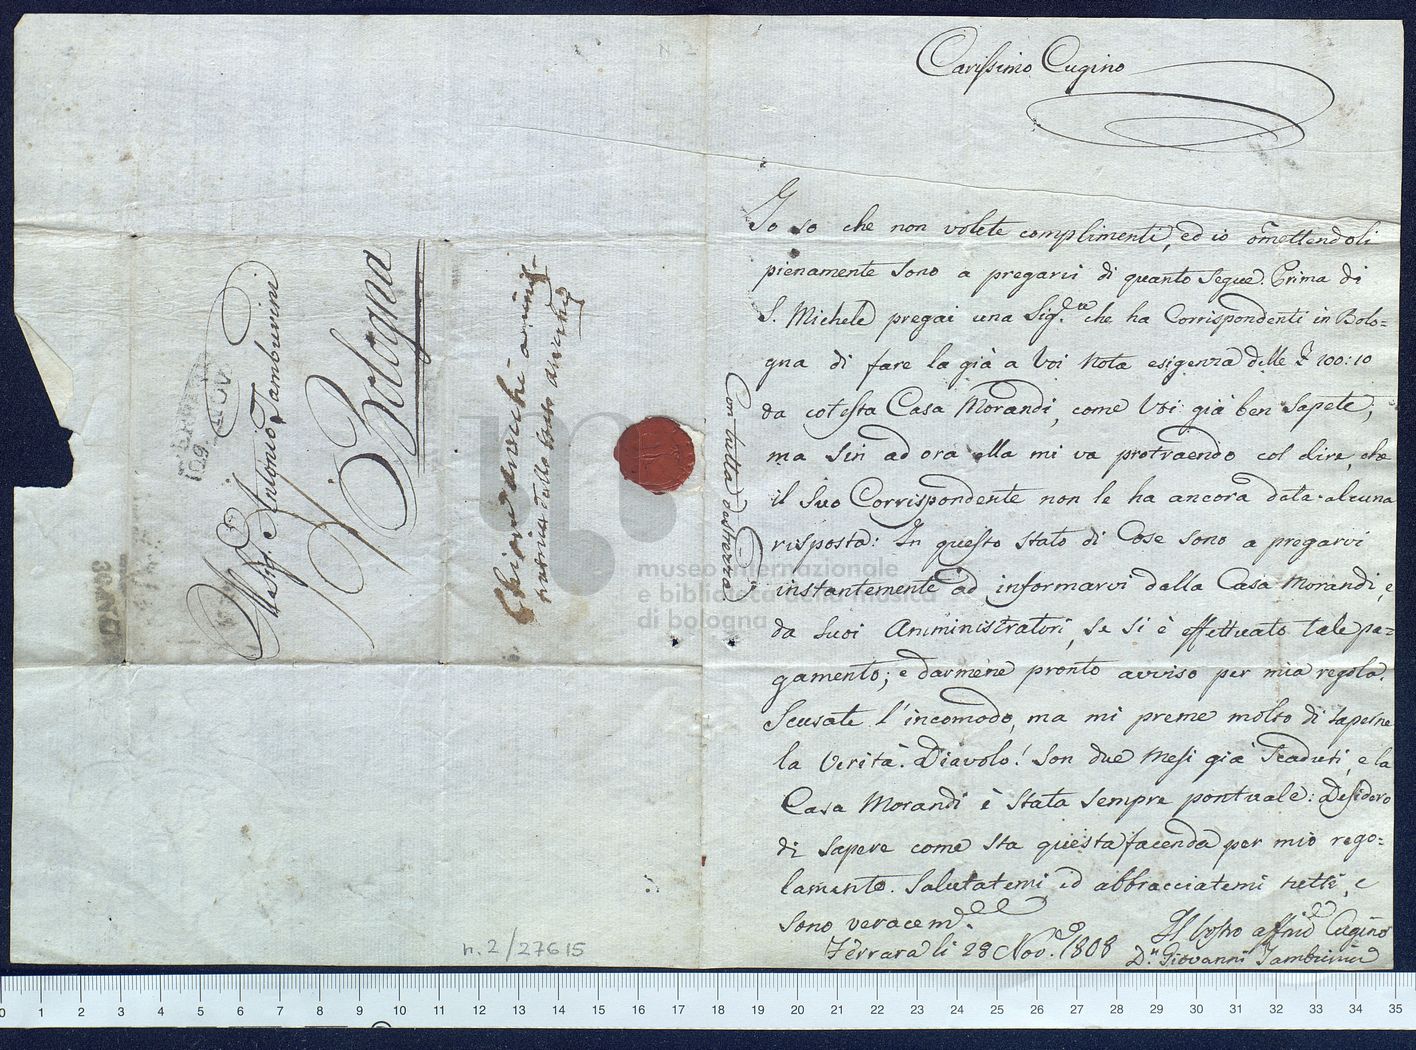 Carissimo Cugino
Io so che non volete complimenti, ed io omettendoli
pienamente sono a pregarvi di quanto segue. Prima di
S. Michele pregai una Sig.re che ha Corrispondenti in Bolo=
gna di fare la già a Voi nota esigenza delle £ 100:10
da cotesta Casa Morandi, come Voi già ben sapete,
ma sin ad ora ella mi va protraendo col dire, che
il suo Corrispondente non le ha ancora data alcuna
risposta: In questo stato di Cose sono a pregarvi
instantemente ad informarvi dalla Casa Morandi, e
da suoi Amministratori, se si è effettuato tale pa=
gamento; e darmene pronto avviso per mia regola.
Scusate l'incomodo, ma mi preme molto di saperne
la verità. Diavolo! Son due Mesi già scaduti, e la
Casa Morandi è stata sempre pontuale: Desidero
di sapere come sta questa facenda per mio rego=
lamento. Salutatemi, ed abbracciatemi tutti, e
sono veracem.e
Ferrara li 28 Nov.e 1808
Il vostro affmo Cugino
D.n Giovanni Tamburini
Con tutta
Al Sig. Antonio Tamburini
Bologna
NOV.
museo internazionale
e biblioteca della musica
di bologna
n. 2/27615
0 1 2 3 4 5 6 7 8 9 10 11 12 13 14 15 16 17 18 19 20 21 22 23 24 25 26 27 28 29 30 31 32 33 34 35